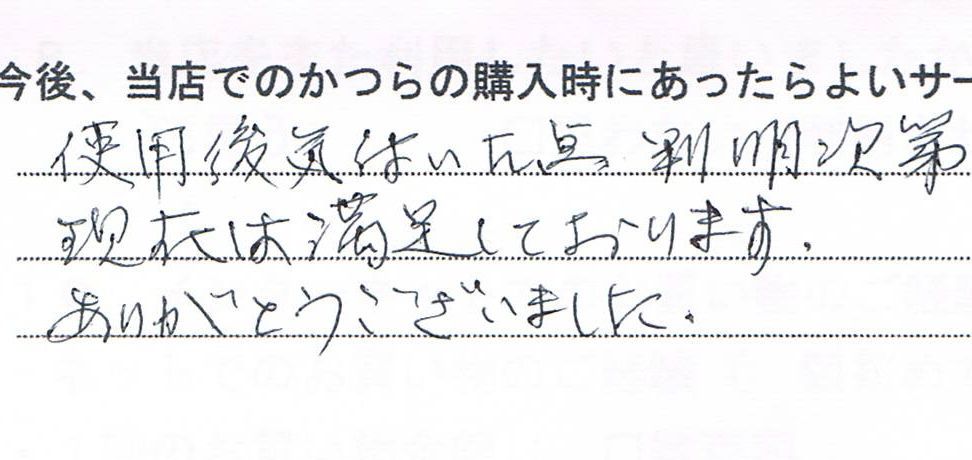 今後、当店でのかつらの購入時にあったらよいサー
使用後気付いた点 判明次第
現在は満足しております.
ありがとうございました.